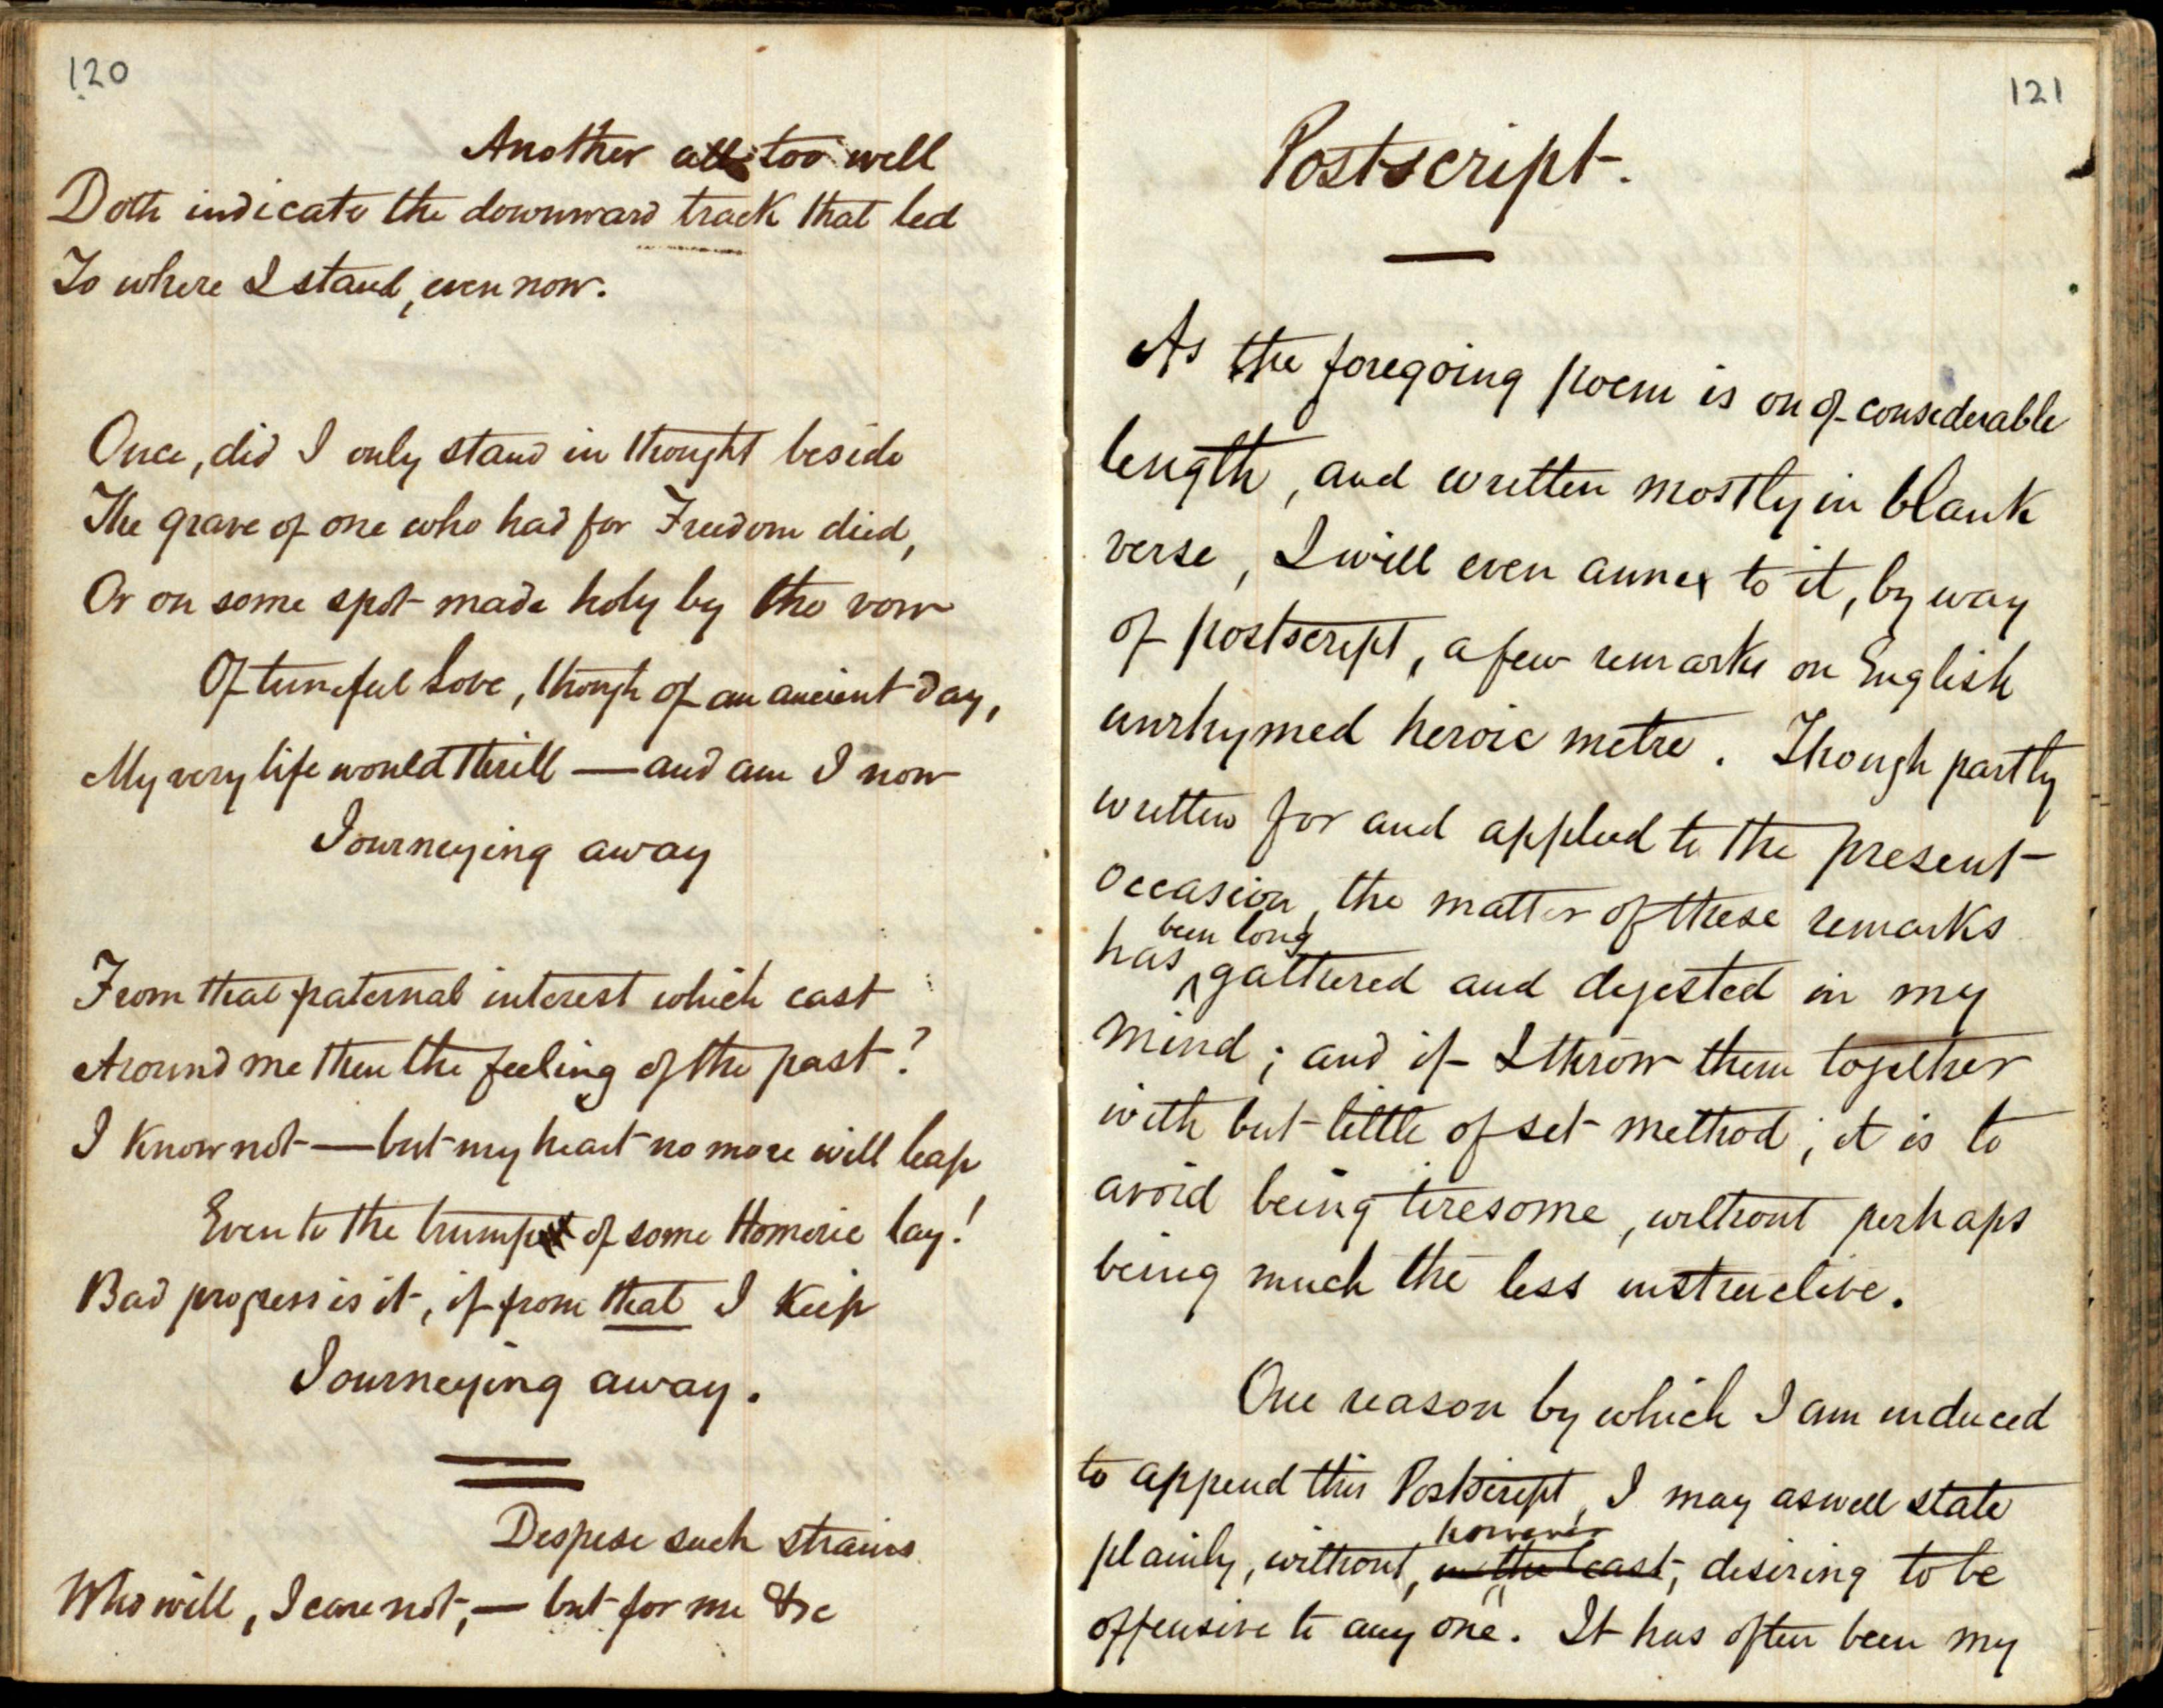 120
Another all too well
Doth indicate the downward track that led
To where I stand, even now.
Once, did I only stand in thought beside
The grave of one who had for Freedom died,
Or on some spot made holy by the vow
Of tuneful Love, though of an ancient day,
My very life would thrill — and am I now
Journeying away
From that paternal interest which cast
Around me then the feeling of the past?
I know not — but my heart no more will leap
Even to the trumpet of some Homeric lay!
Bad progress is it, if from that I keep
Journeying away.
Despise such strains
Who will, I care not, — but for me &c
121
Postscript.
As the foregoing poem is on of considerable
length, and written mostly in blank
verse, I will even annex to it, by way
of postscript, a few remarks on English
unrhymed heroic metre. Though partly
written for and applied to the present
occasion, the matter of these remarks
has been long gathered and digested in my
mind; and if I throw them together
with but little of set method, it is to
avoid being tiresome, without perhaps
being much the less instructive.
One reason by which I am induced
to append this Postscript, I may as well state
plainly, without, however in the least, desiring to be
offensive to any one. It has often been my